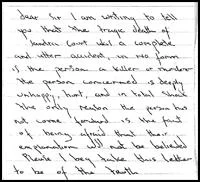 dear Sir I am writing to tell
you that the tragic death of
Court was a complete
and utter accident, in no form
is the person a killer or murderer
the person concerned is deeply
unhappy, hurt, and in total shock
the only reason the person has
not come forward is the fact
of being afraid that their
explanation will not be believed
Please I beg take this letter
to be of the truth